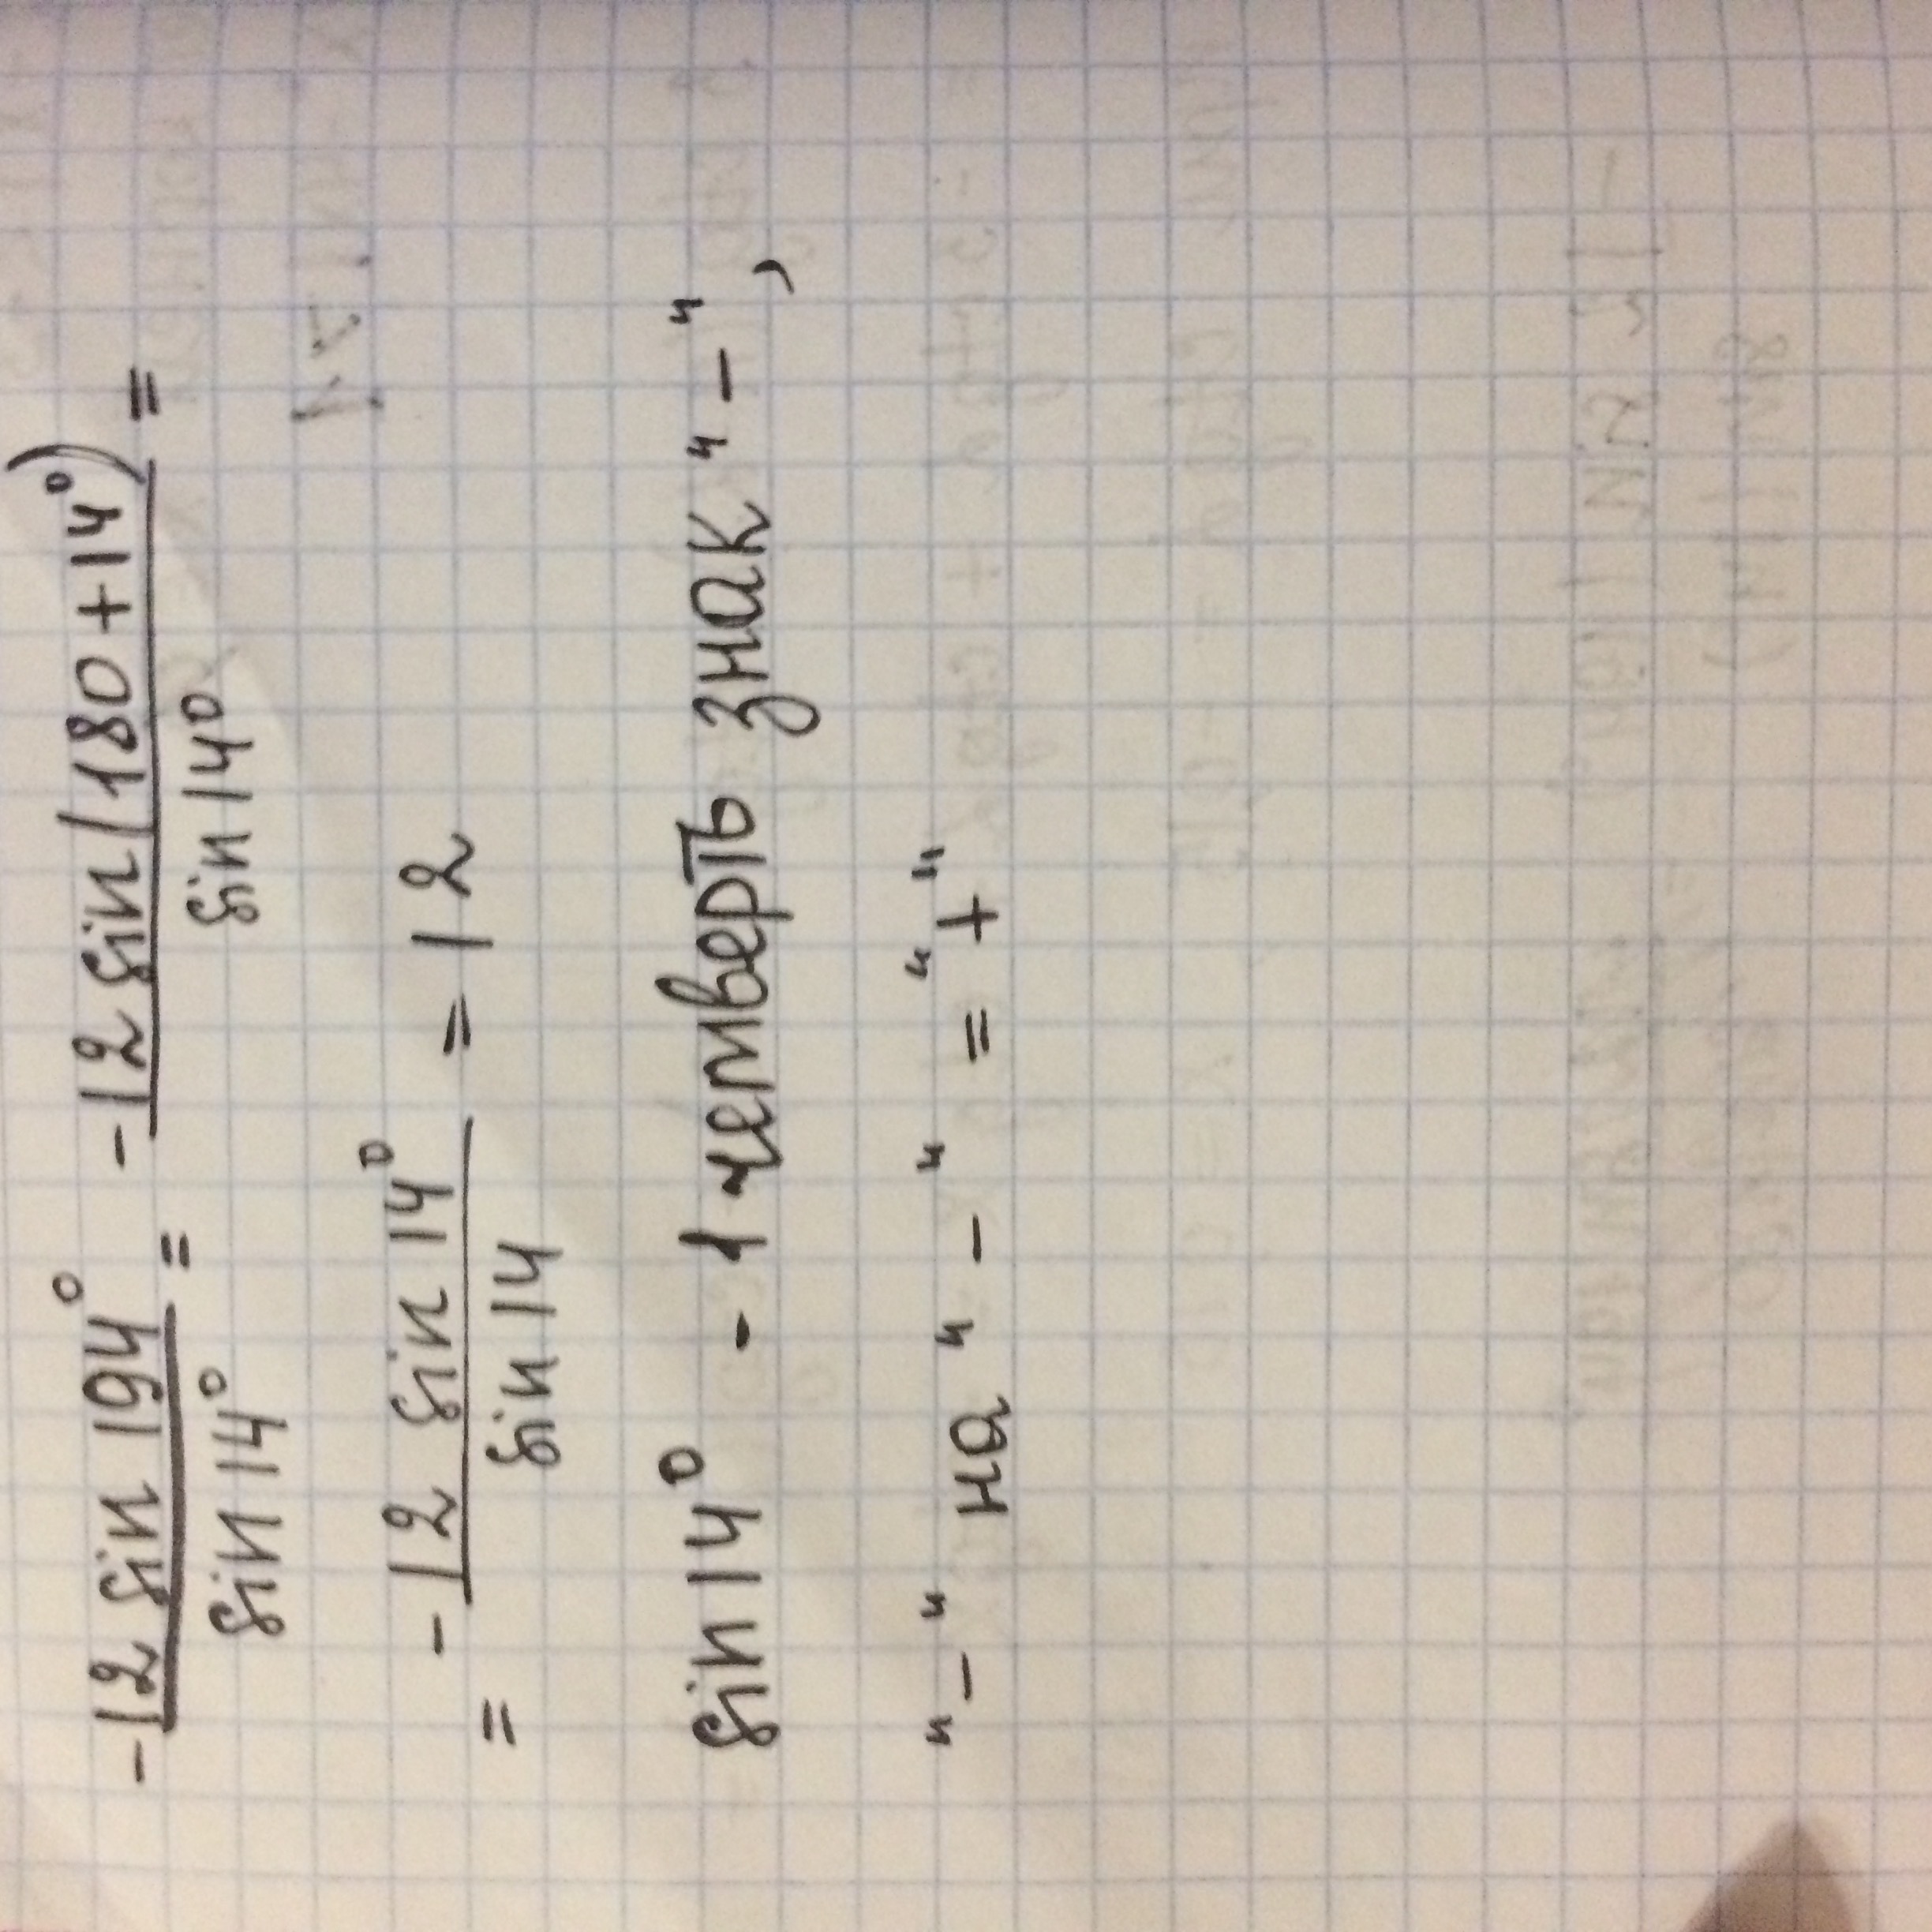 -12 sin 194° / sin 14° = -12 sin(180+14°) / sin 14° =
= -12 sin 14° / sin 14 = 12
sin 14° - 1 четверть знак "-",
"-" на "-" = "+"